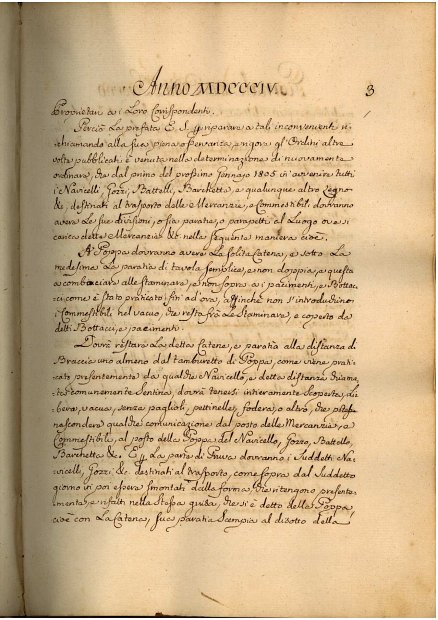 Anno MDCCCIV.
3
Proprietarj a i Loro Corrispondenti.
Perciò La prefata E. S. p riparare a tali inconvenienti ri-
chiamando alla sua piena osservanza, e vigore gl' Ordini altre
volte pubblicati è venuta nella determinazione di nuovamente
ordinare, che dal primo del prossimo Gennajo 1805 in avvenire tutti
i Navicelli, Gozzi, Battelli, Barchette, e qualunque altro Legno
&c. destinati al trasporto delle Mercanzie, e Commestibili dovranno
avere Le sue divisioni, o sia paratie, o parapetti al Luogo ove si
carica dette Mercanzie &c. nella seguente maniera cioè.
A' Poppa dovranno avere La solita Catena, e sotto La
medesima La paratia di tavola semplice, e non doppia, e questa
a combaciare alle staminare, e non sopra a i paimenti, e Bottac-
ci, come è stato praticato fin' ad' ora, affinchè non s' introduchino
i Commestibili nel vacuo, che resta frà Le Staminare, e coperto da
detti Bottacci, e paimenti.
Dovrà restare La detta Catena, e paratia alla distanza di
Braccia uno almeno dal tamburetto di Poppa, come viene prati-
cato presentemente da qualche Navicello, e detta distanza chiama-
ta comunemente Sentina, dovrà tenersi intieramente scoperta, Li-
bera, vacua, senza paglioli, pettinelle, fodera, o altro, che possa
nascondere qualche comunicazione dal posto delle Mercanzie, e
Commestibili, al posto della Poppa del Navicello, Gozzo, Battello,
Barchetta &c. E p La parte di Prua dovranno i Suddetti Na-
vicelli, Gozzi &c. destinati al trasporto, come sopra dal Suddetto
giorno in poi essere smontati dalla forma, che ritengono presente-
mente, e rifatti nella stessa guisa, che si è detto della Poppa
cioè con La Catena, sue paratia scempia al disotto della